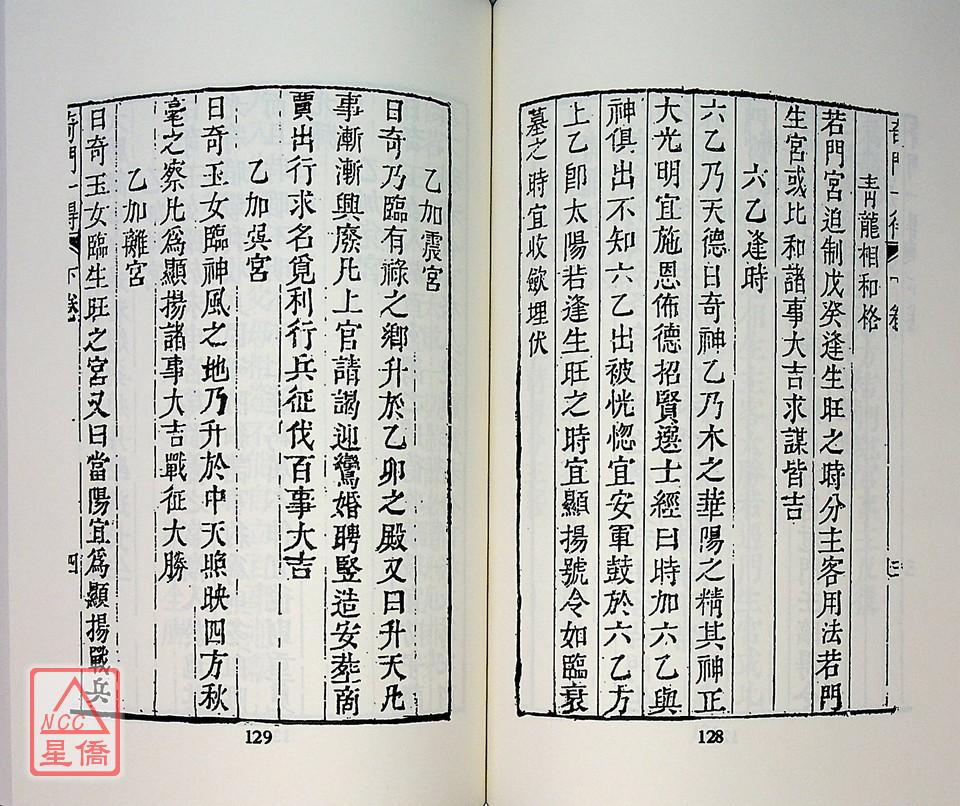 青龍相和格
若門宮追制戊癸逢生旺之時分主客用法若門
生宮或比和諸事大吉求謀皆吉
六乙逢時
六乙乃天德日奇神乙乃木之華陽之精其神正
大光明宜施恩佈德招賢選士經曰時加六乙與
神俱出不知六乙出被恍惚宜安軍鼓於六乙方
上乙卽太陽若逢生旺之時宜顯揚號令如臨衰
墓之時宜收歛埋伏
128
乙加震宮
日奇乃臨有祿之鄉升於乙卯之殿又曰升天凢
事漸漸興廢凢上官請謁迎鸞婚聘竪造安葬商
賈出行求名覓利行兵征伐百事大吉
乙加巽宮
日奇玉女臨神風之地乃升於中天照映四方秋
毫之察凢爲顯揚諸事大吉戰征大勝
乙加離宮
日奇玉女臨生旺之宮又曰當陽宜爲顯揚戰兵
奇門一得 下卷 四
129
NCC
星僑